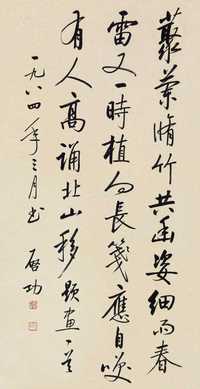 叢蘭脩竹共幽姿細雨春
雷又一時植向長箋應自哂
有人高誦北山移 題畫一首
一九八四年三月書 啓功